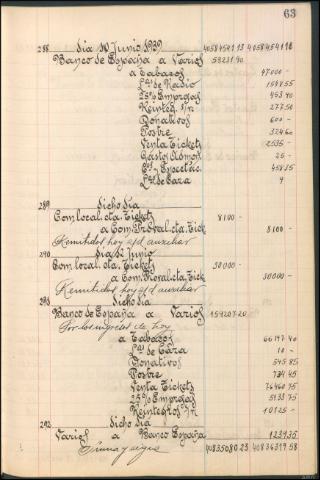 63
288 dia 10 Junio 1939 40584541 13 40584541 18
Banco de España a Varios 59231 40
a Tabacos 47000 -
Lzas de Radio 1548 55
25% Empreſas 453 40
Reinteg. 277 50
Donativos 600 -
Postre 324 60
Venta Tickets 2535 -
Gastos Admon 25 -
Espectác. 458 35
de Caza 9
289 dicho dia
Com. local. cta. Tickets 8100 -
a Com. Proval. cta. Tick 8100 -
Remitidos hoy al auxiliar
290 dia Junio
Com. local. cta. Tickets 30000 -
a Com. Proval. cta. Tick 30000 -
Remitidos hoy al auxiliar
291 dicho dia
Banco de España a Varios 159207 20
Por los ingresos de hoy
a Tabacos 66197 40
de Caza 10 -
Donativos 545 85
Postre 734 45
Venta Tickets 76460 75
25% Empresas 5133 75
Reintegros 10125 -
292 dicho dia
Varios a Banco España 1239 35
Suma y sigue 40835080 23 40836319 58